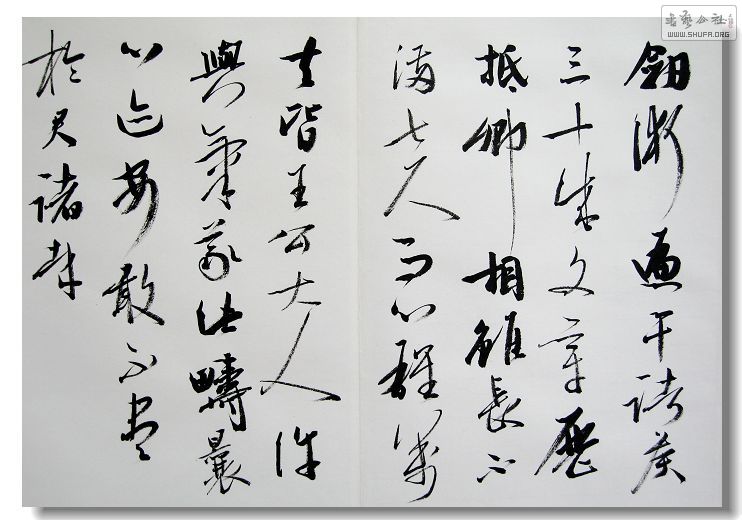 書藝公社
WWW.SHUFA.ORG
劒術遍干諸侯
三十成文章歷
抵卿相雖長不
滿七尺而心雄萬
夫皆王公大人許
與氣義此疇曩
心迹安敢不盡
於君諸哉